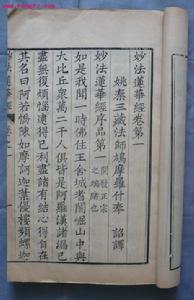 妙法蓮華經卷第一
姚秦三藏法師鳩摩羅什奉 詔譯
妙法蓮華經序品第一
如是我聞一時佛住王舍城耆闍崛山中與
大比丘衆萬二千人俱皆是阿羅漢諸漏已
盡無復煩惱逮得己利盡諸有結心得自在
其名曰阿若憍陳如摩訶迦葉優樓頻螺迦